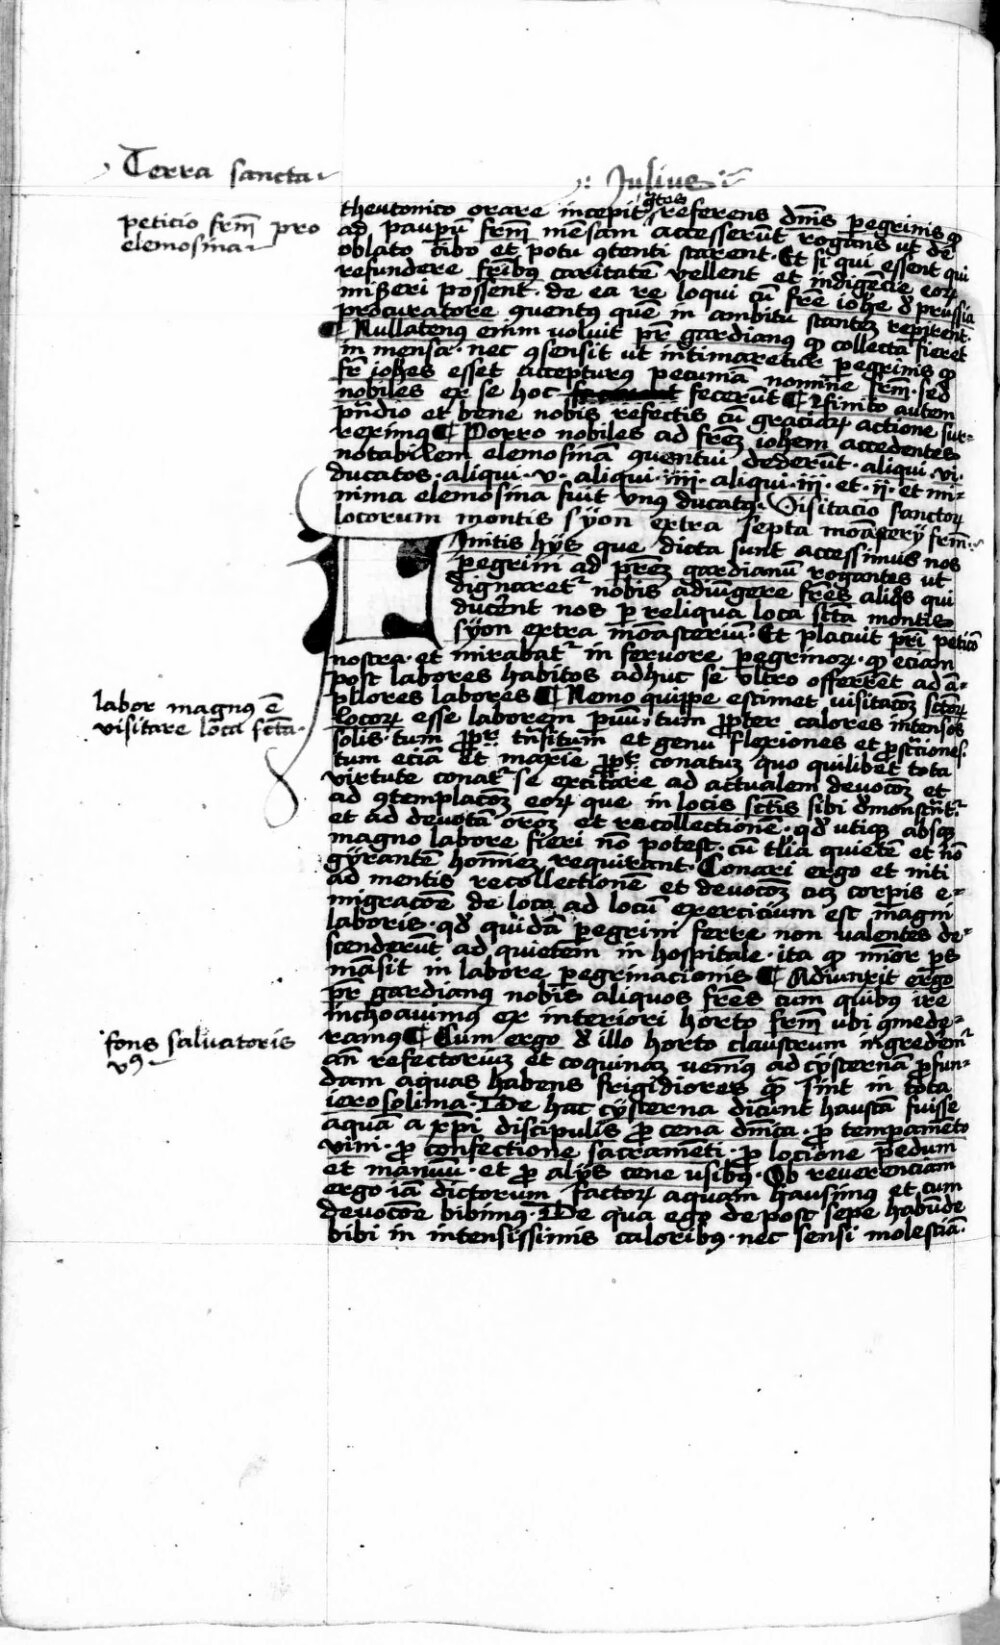 Terra sancta
Julius
peticio frm̄ pro
elemosina
theutonico orare incepit gͣtes referens dn̄is peregrinis ꝙ
ad paupū frm̄ mēsam accesserūt rogans ut dē
oblato cibo et potu ꝯtenti starent. Et si qui essent qui
refundere fr̄ibꝰ caritatē vellent et indigēcie eoꝝ
miseri possent. de ea re loqui cū fr̄e ioh̄e d̄ prussia
procuratore ꝯuentus quē in ambitu stantē reperirent.
¶ Nullatenꝰ enim voluit pr̄ gardianꝰ ꝙ collecta fieret
in mensa. nec ꝯsensit ut intimaretur peregrinis ꝙ
fr̄ ioh̄es esset accepturꝰ pecuniā nomine frm̄. sed
nobiles ex se hoc fecerūt ¶ Finito autem
pn̄dio et bene nobis refectis cū graciaꝝ actione sur-
reximꝰ ¶ Porro nobiles ad frēm ioh̄em accedentes
notabilem elemosinā ꝯuentui dederūt. aliqui .vi.
ducatos. aliqui .v. aliqui .iiii. aliqui .iii. et .ii. et mi-
nima elemosina fuit vnꝰ ducatꝰ. Visitacio sanctoꝝ
locorum montis syon extra septa monasterij frm̄.
Finitis hijs que dicta sunt accessimus nos
peregrini ad prēm gardianū rogantes ut
dignaretͬ nobis adiūgere frēs aliqͦs qui
ducerent nos p reliqua loca sct̄a montis
syon extra mōasteriū. Et placuit pr̄i peticō
nostra. et mirabatͬ in feruore peregrinoꝝ. ꝙ eciam
post labores habitos adhuc se vltro offerrēt ad ā-
pliores labores ¶ Nemo quippe estimet visitacōem sctōꝝ
labor magnꝰ ē
visitare loca sctā.
locoꝝ esse laborem paruū. tum propter calores intensos
solis. tum ppt̄ trāsitum et genu flexiones et prostrāciones.
tum eciā et maxie ppt̄ conatum quo quilibet tota
virtute conatͬ se excitare ad actualem deuocōem et
ad ꝯtemplacōem eoꝝ que in locis sctīs sibi d̄monstrantͬ
et ad deuotā orōem et recollectionē. qd̄ utiqꝫ absqꝫ
magno labore fieri nō potest. cū talia quietē et nō
gyrantē hominem requirant. Conari ergo et niti
ad mentis recollectionē et deuocōem cum corpis e-
migracōe de loco ad locū exercicium est magni
laboris. qd̄ quidā peregrini ferre non valentes de-
scenderūt ad quietem in hospitale. ita ꝙ minor ps
māsit in labore peregrinacionis ¶ Adiunxit ergo
pr̄ gardianꝰ nobis aliquos frēs cum quibus ire
inchoauimꝰ ex interiori horto frm̄ ubi ꝯmede-
ramꝰ ¶ Cum ergo d̄ illo horto claustrum ingredimͬ
fons saluatoris
an̄ refectorium et coquinam uenimꝰ ad cysternā profun-
dam aquas habens frigidiores quā sint in tota
ierosolima. De hac cysterna dicunt haustā fuisse
aquā a xp̄i discipulis pro cena dn̄ica. pro temperamēto
vini. pro confectione sacramēti. pro locione pedum
et manuū. et pro alijs cene usibꝰ. Ob reuerenciam
ergo iā dictorum factoꝝ aquam hausimus et cum
deuocōe bibimꝰ. De qua ego de post sepe habūde
bibi in intensissimis caloribꝰ. nec sensi molestiā.